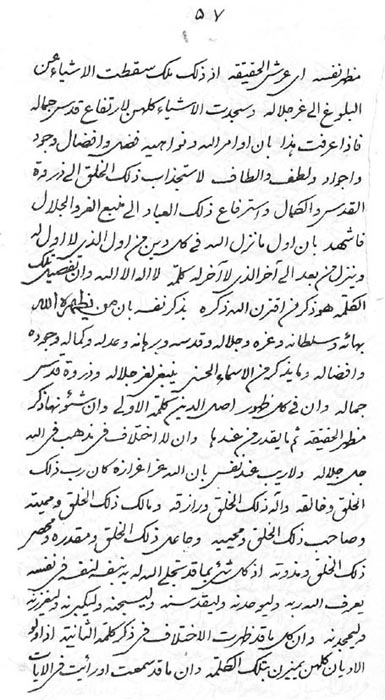 ٥٧
مظهر نفسه ای عرش الحقیقه اذ ذلک ملک سقطت الاشیاء عن
البلوغ الی عز جلاله و سجدت الاشیاء کلهن لارتفاع قدس جماله
فاذا عرفت هذا بان اوامر الله و نواهیه فضل و افضال وجود
واجواد ولطف والطاف لاستجذاب ذلک الخلق الی ذروة
القدس والکمال واسترفاع ذلک العباد الی منبع العز والجلال
فاشهد بان اول ما نزل الله فی کل دین من اول الذی لا اول له
وینزل من بعد الی آخر الذی لا آخر له کلمة لا اله الا الله وان تفصیل تلک
الکلمه هو ذکر من اقترن الله ذکره بذکر نفسه بان من یظهره الله
بهائه و سلطانه و عزه و جلاله و قدسه و برهانه و عدله و کماله وجوده
وافضاله و ما یذکر من الاسماء الحسنی ینبغی لعز جلاله و ذروة قدس
جماله وان فی کل ظهور اصل الدین کلمة الاولی وان شئونها ذکر
مظهر الحقیقه ثم ما یقدر من عندها وان لا اختلاف فی مذهب فی الله
جل جلاله ولا ریب عند نفس بان الله عز اعزازه کان رب ذلک
الخلق و خالقه واله ذلک الخلق و رازقه و مالک ذلک الخلق و ممیته
وصاحب ذلک الخلق و محییه و جاعل ذلک الخلق و مقدره و محصی
ذلک الخلق و مذوته اذ کل شئ بما قد تجلی الله له به بنفسه لنفسه فی نفسه
یعرف الله ربه ولیوحدنه ولیقدسنه ولیسبحنه ولیکبرنه ولیعززنه
ولیمجدنه وان کل ما قد ظهرت الاختلاف فی ذکر کلمة الثانیة اذ اولو
الادیان کلهن بمیزان بتلک الکلمه وان ما قد سمعت او رایت فی الآیات